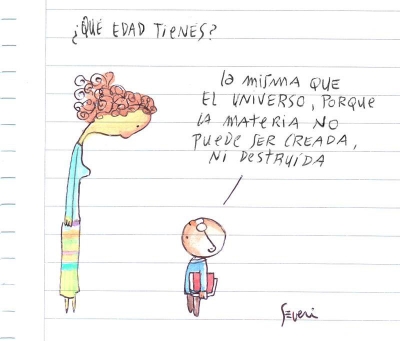 ¿QUÉ EDAD TIENES?
La misma que
EL UNIVERSO, PORQUE
LA MATERIA NO
PUEDE SER CREADA,
NI DESTRUÍDA
Severi